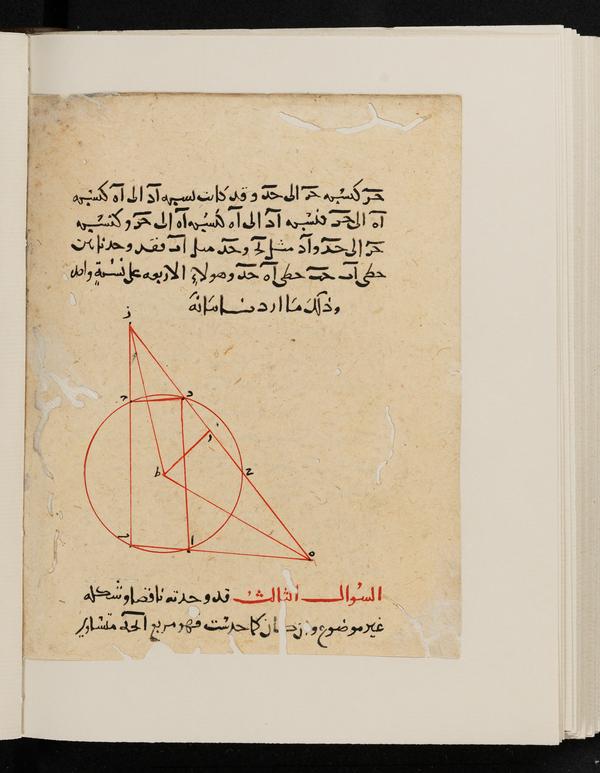 كنسبه حر الى حد و قد كانت نسبه اد الى اه كنسبه
اه الى حر فنسبه اد الى اه كنسبه اه الى حر و كنسبه
حر الى حد واد مثل وحد مثل اب فقد وجدنا بين
خطى اب خطى اه حد وهولاى الاربعه على نسبة
وذلك ما اردنا بيانه
ز
د
ح
ط
ا
ه
السوال الثالث قد وجدته ناقصا وشكله
غير موضوع كما حدست فهو مربع متساوى